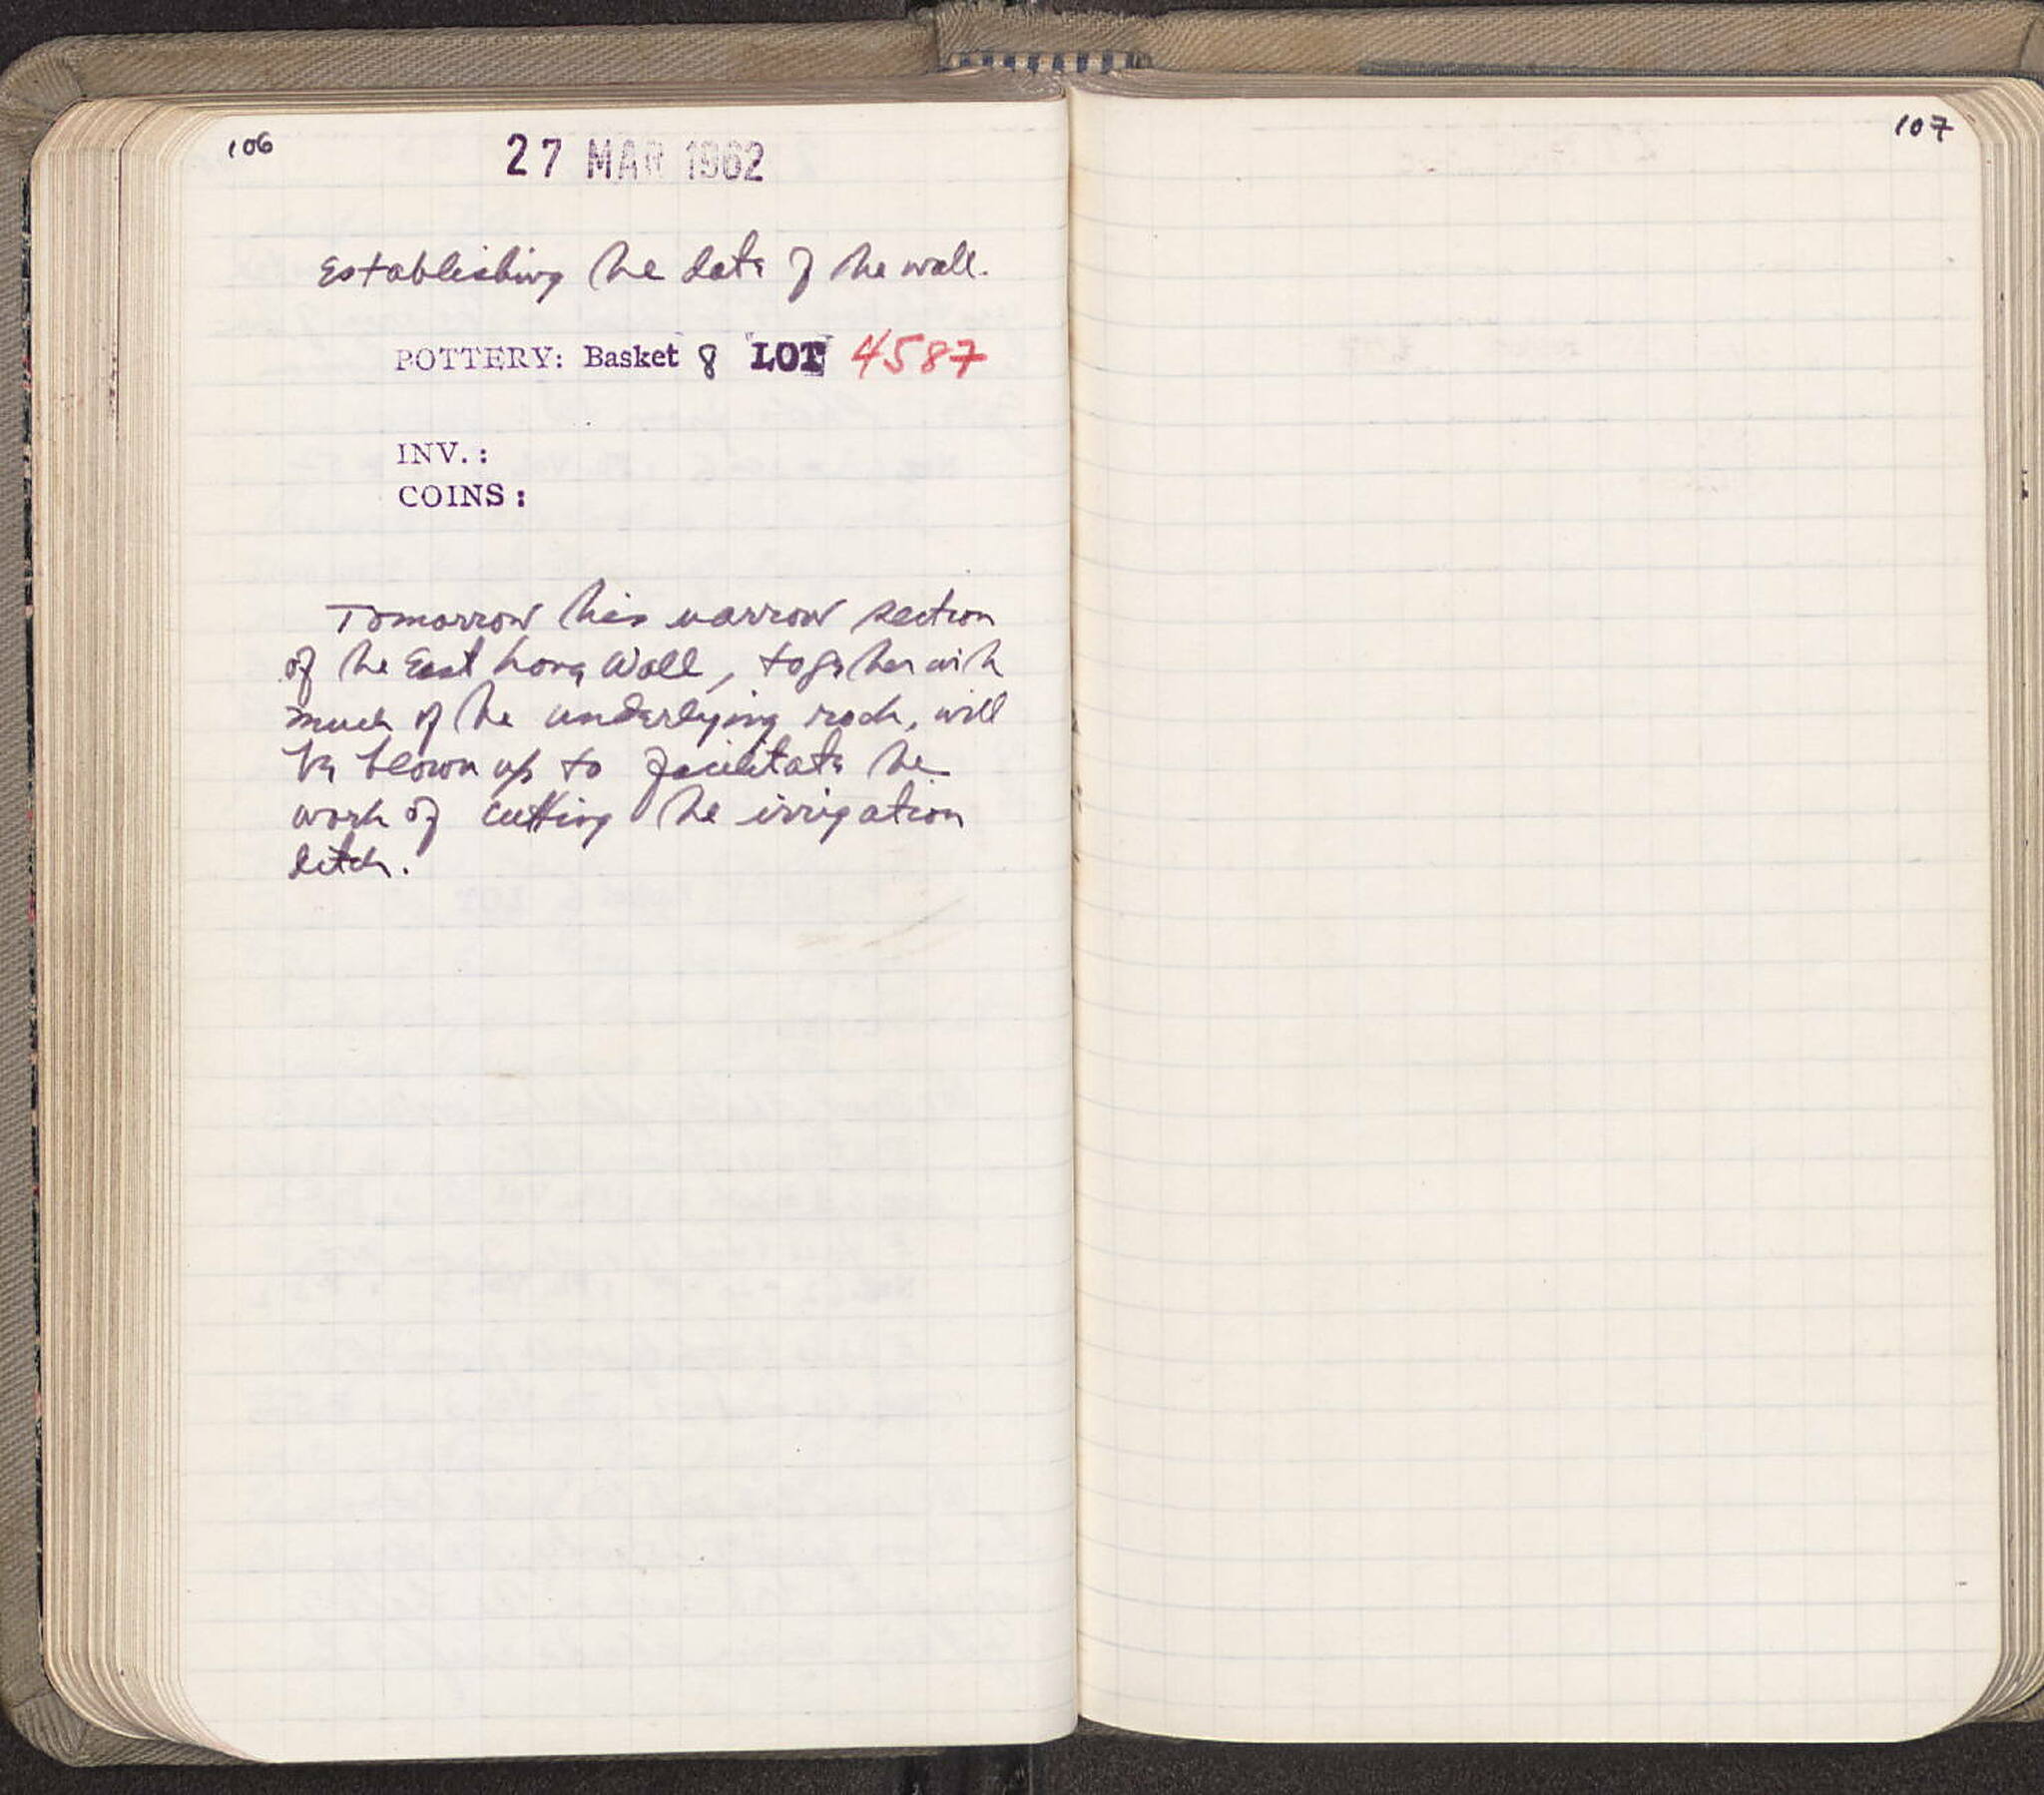 106
27 MAR 1962
Establishing the date of the wall.
POTTERY: Basket 8 LOT 4587
INV.:
COINS:
Tomorrow this narrow section
of the East Long Wall, together with
much of the underlying rock, will
be blown up to facilitate the
work of cutting the irrigation
ditch.
107